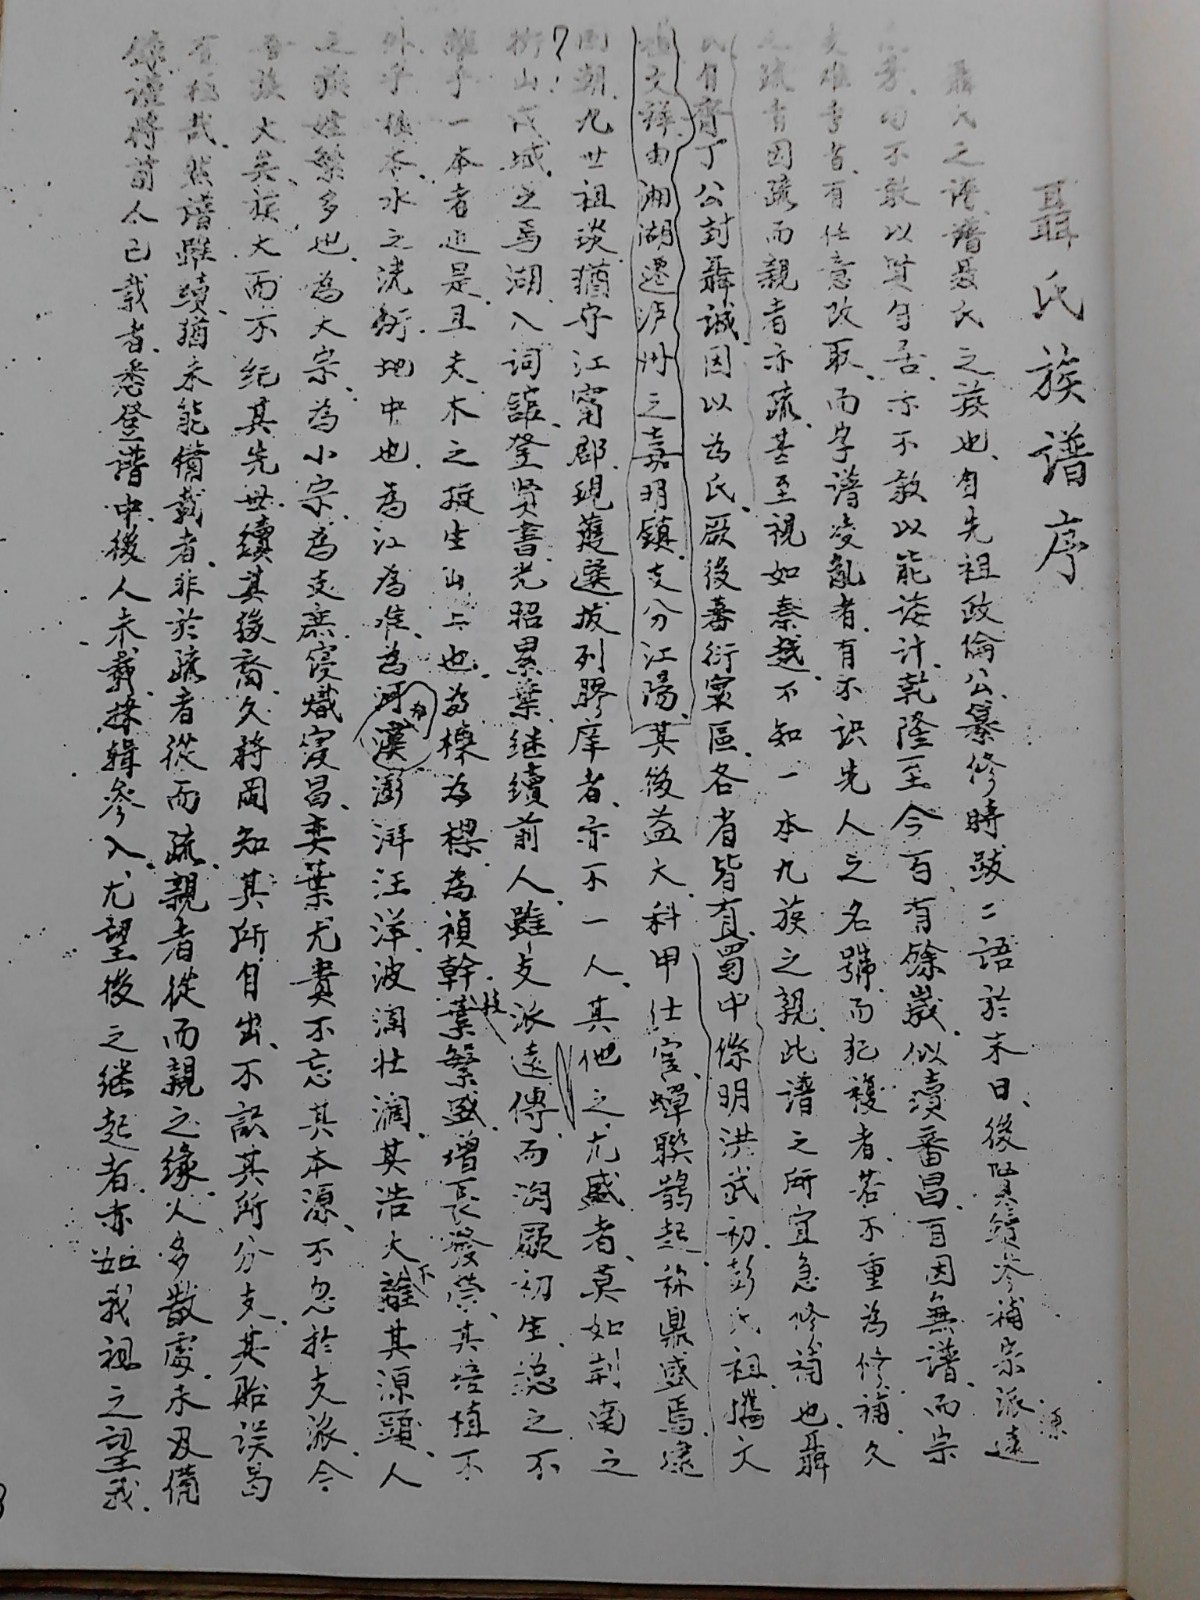 聶氏族譜序
聶氏之譜譜聶氏之族也、自先祖政倫公纂修時跋二語於末曰、後賢續參補宗派遠
源
勿不敢以賢自居亦不敢以能諉計、乾隆至今百有餘歲、似續番昌、盲因無譜、而宗
支難考者、有任意改取、而字譜凌亂者、有不識先人之名號、而犯複者、若不重為修補、久
之疏者因疏而親者亦疏、甚至視如秦越、不知一本九族之親、此譜之所宜急修補也、聶
氏自齊丁公封聶誠因以為氏、厥後蕃衍寰區、各省皆有、蜀中係明洪武初、彭氏祖攜文
文祥由湘湖遷泸州之嘉明鎮、支分江陽、其後益大、科甲仕宦、蟬聯鵲起、称鼎盛焉、逮
?
國朝、九世祖琰、猶守江甯郡、現薦選拔列膠庠者、亦不一人、其他之尤盛者、莫如荆南之
衡山茂域之焉湖、入詞舘、登賢書、光昭累葉、继續前人、雖支派遠傳、而泝厥初生、総之不
離乎一本者近是、且夫木之挺生山上也、為棟為樑、為禎幹、葉繁盛、增長發榮、其培植不
枝
外乎根本、水之洸衍地中也、為江為准、為河漢、澎湃汪洋、波瀾壮濶、其浩大離其源頭、人
為
不
之族姓繁多也、為大宗、為小宗、為支庶、寖熾寖昌、奕葉尤貴不忘其本源、不忽於支派、今
吾族大矣、族大而不纪其先世、續其後裔、久將罔知其所自出、不識其所分支、其貽误曷
有極哉、然譜雖續、猶未能備載者、非於疏者從而疏、親者從而親之缘、人多散處、未及備
錄、謹將前人已載者、悉登譜中、後人未載、採輯參入、尤望後之继起者、亦如我祖之望我、